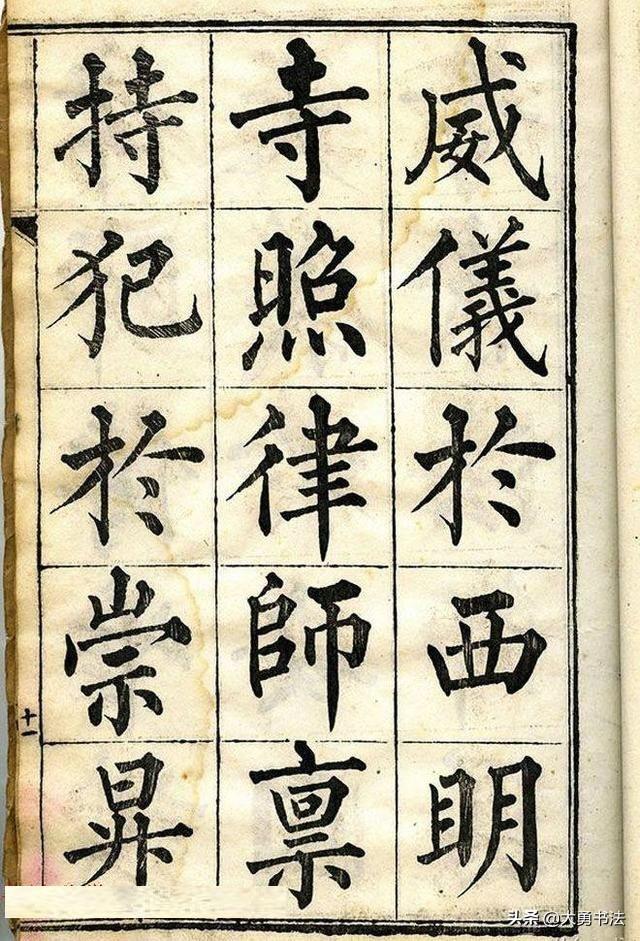 威儀於西明
寺照律師禀
持犯於崇昇
十一
头条@大勇书法